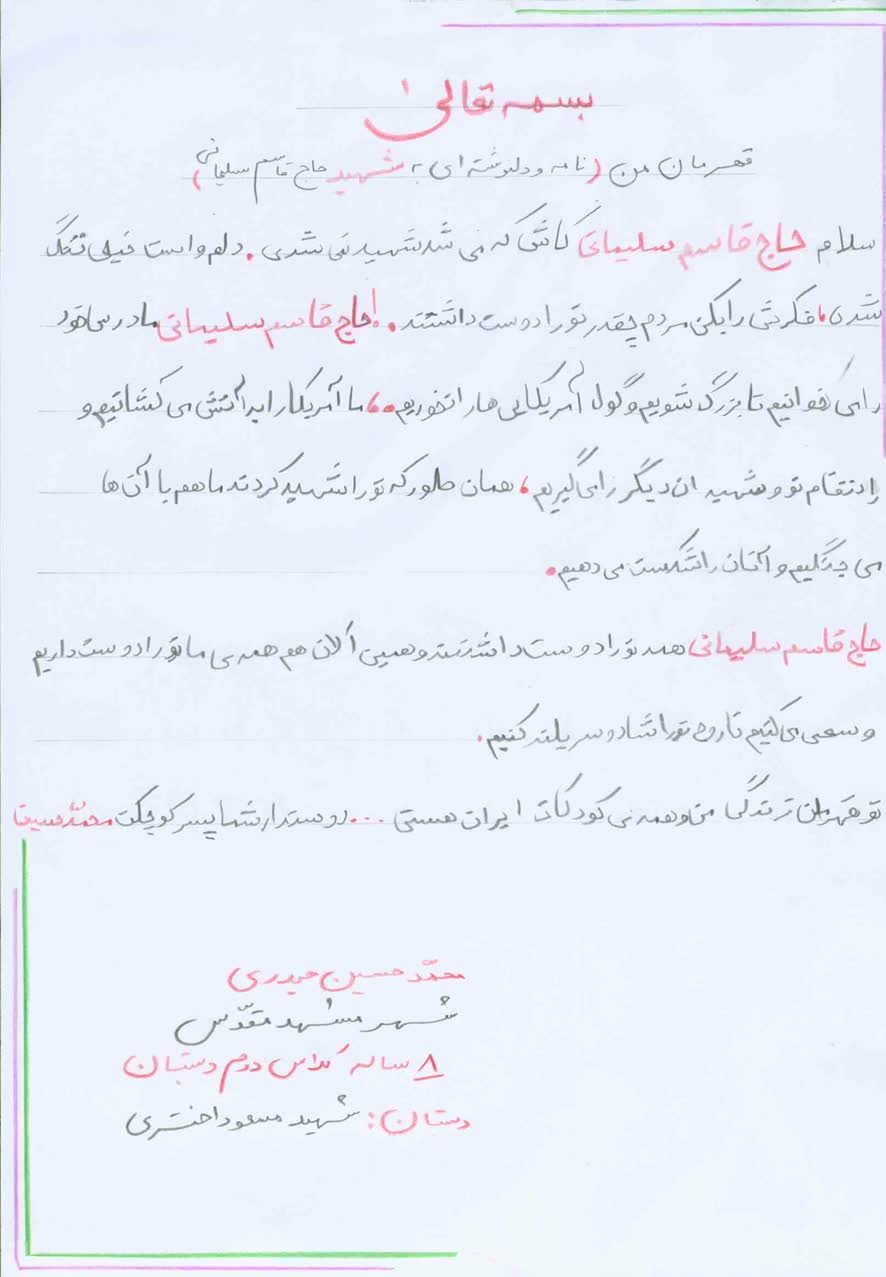 بسمه تعالی
قهرمان من (نامه و دلنوشته ای به شهید حاج قاسم سلیمانی)
سلام حاج قاسم سلیمانی کاش که می شد شهید نمی شدی. دلم واست خیلی تنگ
شدی، فکرش را بکن مردم چقدر تو را دوست داشتند. حاج قاسم سلیمانی ما درس خود
را می خوانیم تا بزرگ شویم و گول آمریکایی ها را نخوریم. ما آمریکا را به آتش می کشانیم و
انتقام تو و شهیدان دیگر را می گیریم، همان طور که تو را شهید کردند ما هم با آن ها
می جنگیم و آنان را شکست می دهیم.
حاج قاسم سلیمانی همه تو را دوست داشتند و همین آلان هم همه ی ما تو را دوست داریم
و سعی می کنیم تا روح تو را شاد و سربلند کنیم.
تو قهرمان زندگی من و همه ی کودکان ایران هستی ... دوستدار شما پسر کوچکت محمّد حسین
محمّد حسین حیدری
شهر مشهد مقدّس
۸ ساله کلاس دوم دبستان
دبستان: شهید مسعود اختری